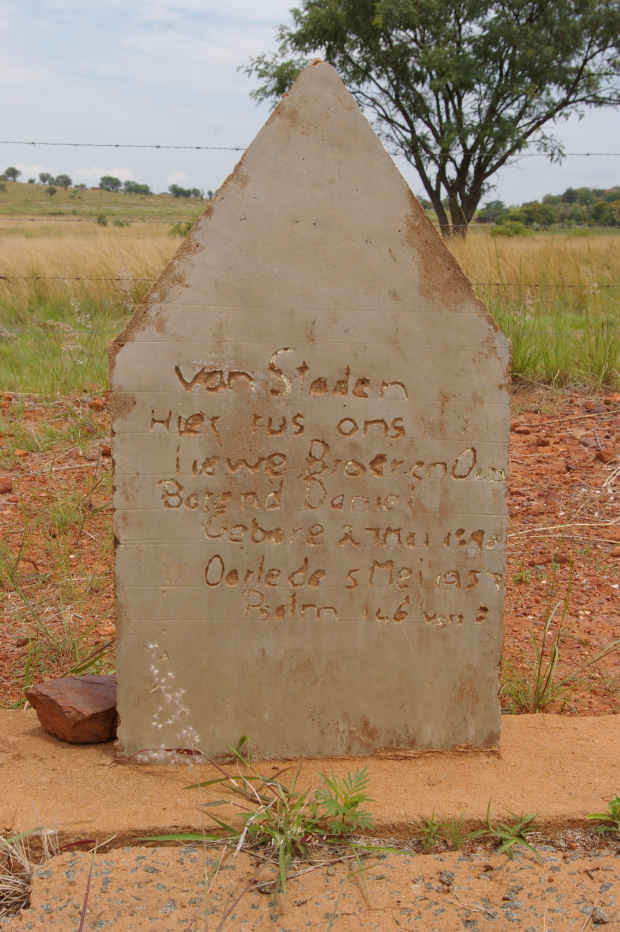 van Staden
Hier rus ons
liewe Broer en
Barend Daniel
Gebore 27 Mei
Oorlede 5 Mei 1957
Psalm 146 van